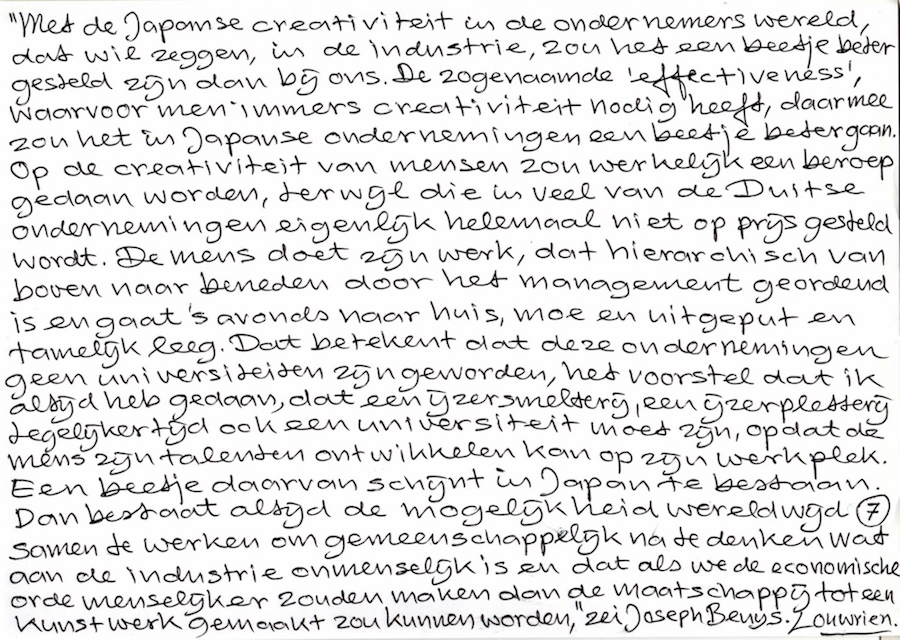 "Met de Japanse creativiteit in de ondernemers wereld,
dat wil zeggen, in de industrie, zou het een beetje beter
gesteld zijn dan bij ons. De zogenaamde 'effectiveness',
waarvoor men immers creativiteit nodig heeft, daarmee
zou het in Japanse ondernemingen een beetje beter gaan.
Op de creativiteit van mensen zou werkelijk een beroep
gedaan worden, terwijl die in veel van de Duitse
ondernemingen eigenlijk helemaal niet op prijs gesteld
wordt. De mens doet zijn werk, dat hierarchisch van
boven naar beneden door het management geordend
is en gaat 's avonds naar huis, moe en uitgeput en
tamelijk leeg. Dat betekent dat deze ondernemingen
geen universiteiten zijn geworden, het voorstel dat ik
altijd heb gedaan, dat een ijzersmelterij, een ijzerpletterij
tegelijkertijd ook een universiteit moet zijn, opdat de
mens zijn talenten ontwikkelen kan op zijn werkplek.
Een beetje daarvan schijnt in Japan te bestaan.
Dan bestaat altijd de mogelijkheid wereldwijd 7
samen te werken om gemeenschappelijk na te denken wat
aan de industrie onmenselijk is en dat als we de economische
orde menselijker zouden maken dan de maatschappij tot een
kunstwerk gemaakt zou kunnen worden," zei Joseph Beuys. Zouwrien.